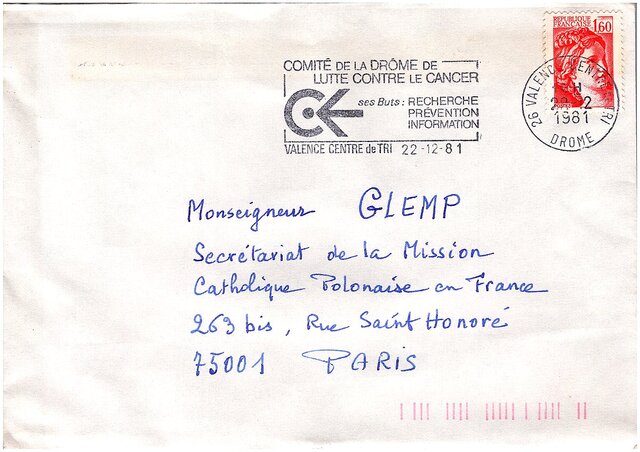 RÉPUBLIQUE
FRANÇAISE
1,60
COMITÉ DE LA DRÔME DE
LUTTE CONTRE LE CANCER
ses Buts : RECHERCHE
PRÉVENTION
INFORMATION
VALENCE CENTRE de TRI 22-12-81
26 VALENCE CENTRE TRI
H
1981
DROME
Monseigneur GLEMP
Secrétariat de la Mission
Catholique Polonaise en France
263 bis, Rue Saint Honoré
75001 PARIS